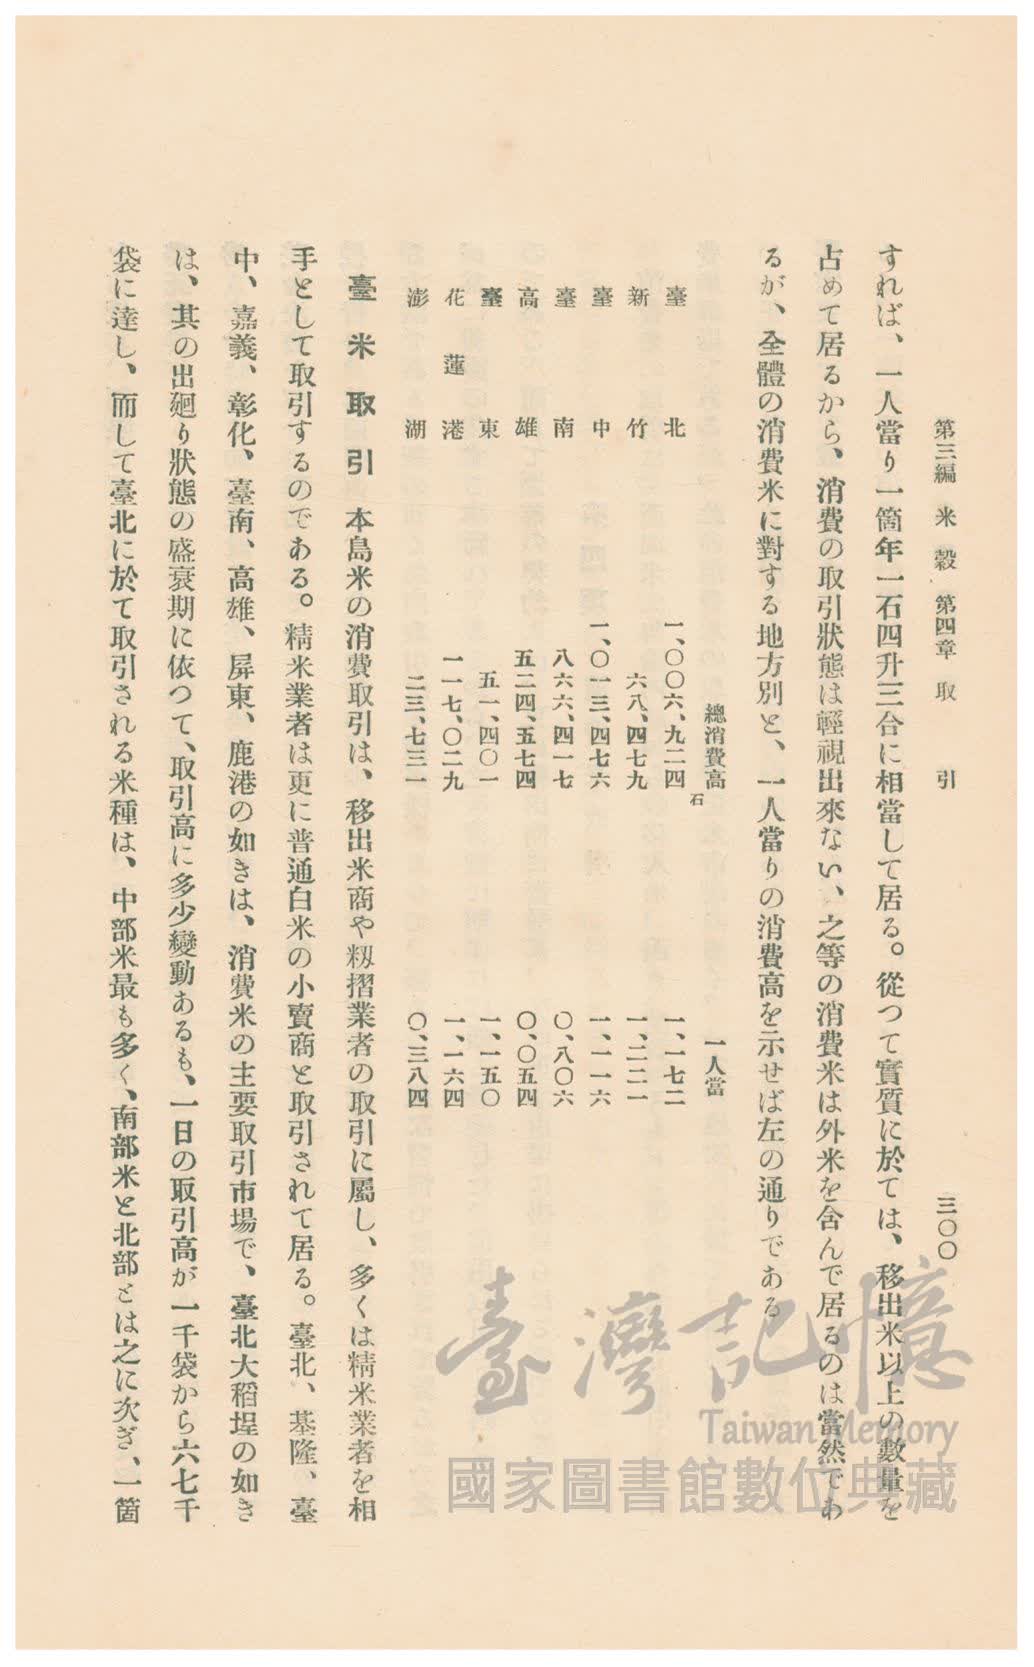 第三編 米穀 第四章 取引 三〇〇
すれば、一人當り一箇年一石四升三合に相當して居る。從つて實質に於ては、移出米以上の數量を
占めて居るから、消費の取引狀態は輕視出來ない、之等の消費米は外米を含んで居るのは當然であ
るが、全體の消費米に對する地方別と、一人當りの消費高を示せば左の通りである
總消費高 一人當
石
臺北 一、〇〇六、九二四 一、一七二
新竹 六八、四七九 一、二二一
臺中 一、〇一三、四七六 一、一一六
臺南 八六六、四一七 〇、八〇六
高雄 五二四、五七四 〇、〇五四
臺東 五一、四〇一 一、一五〇
花蓮港 一一七、〇二九 一、一六四
澎湖 二三、七三一 〇、三八四
臺米取引 本島米の消費取引は、移出米商や籾摺業者の取引に屬し、多くは精米業者を相
手として取引するのである。精米業者は更に普通白米の小賣商と取引されて居る。臺北、基隆、臺
中、嘉義、彰化、臺南、高雄、屏東、鹿港の如きは、消費米の主要取引市場で、臺北大稻埕の如き
は、其の出廻り狀態の盛衰期に依つて、取引高に多少變動あるも、一日の取引高が一千袋から六七千
袋に達し、而して臺北に於て取引される米種は、中部米最も多く、南部米と北部とは之に次ぎ、一箇
臺灣記憶
Taiwan Memory
國家圖書館數位典藏